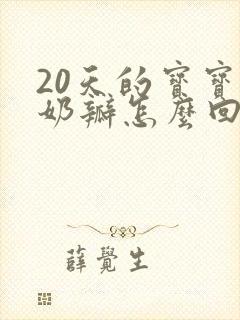 20天的寶寶
奶瓣怎麼回
薛覺生